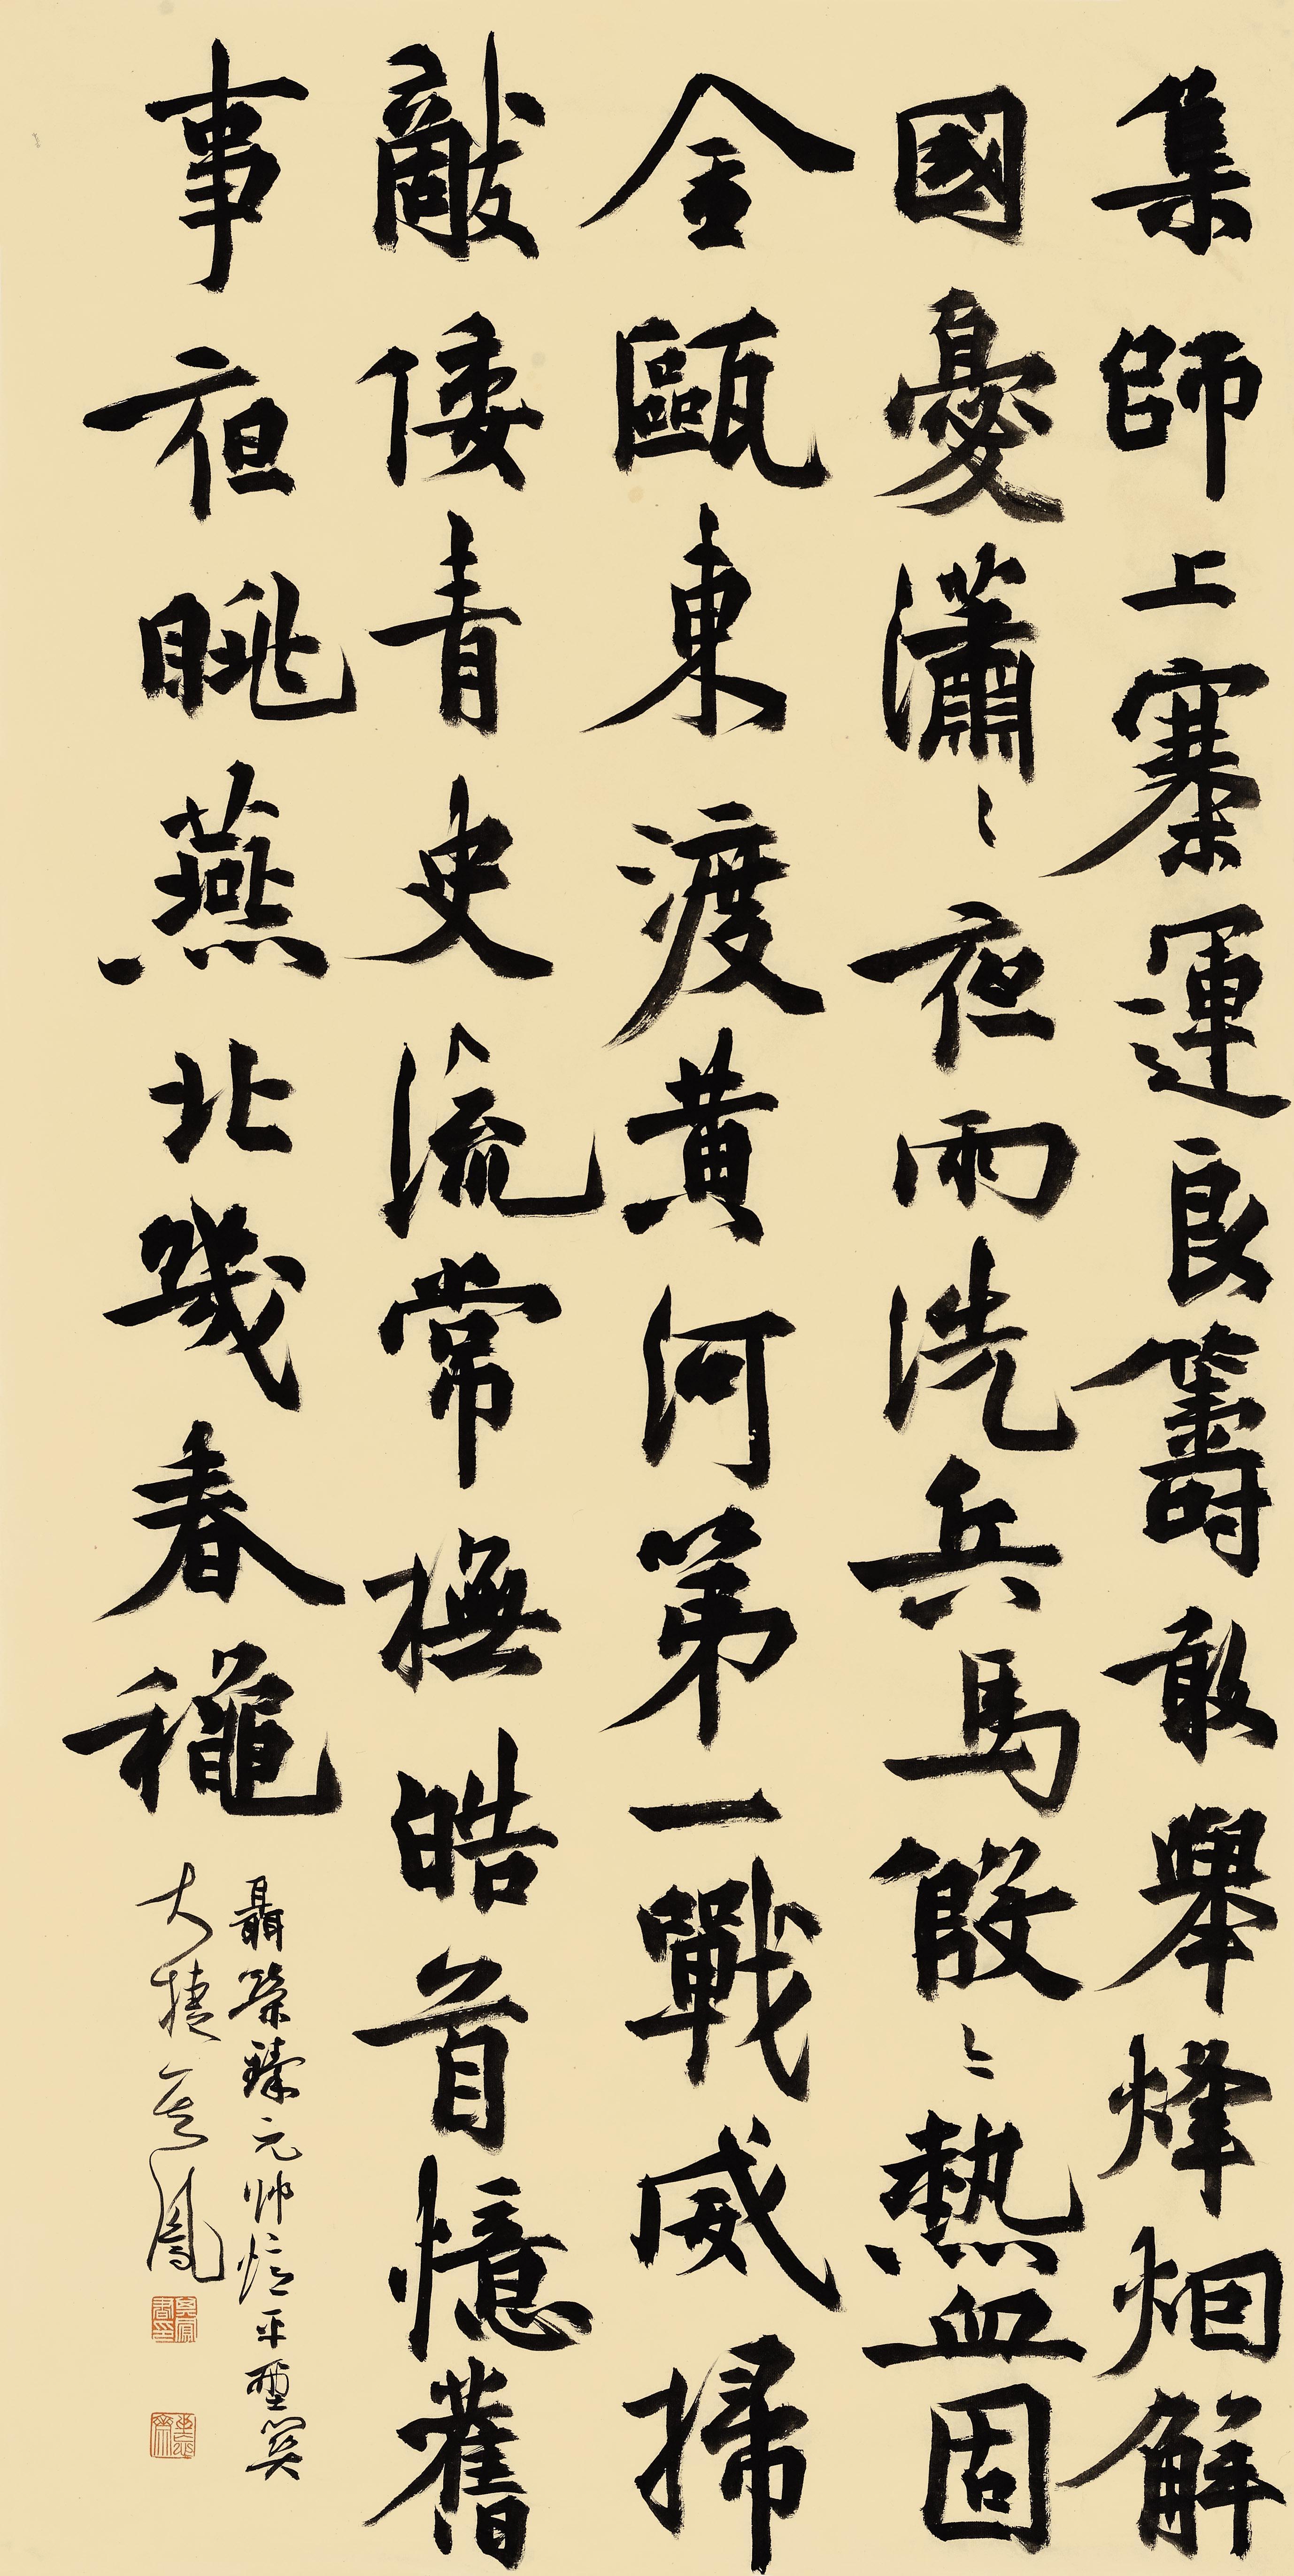 集師上寨運良籌敢舉烽烟解
國憂瀟〻夜雨洗兵馬殷〻熱血固
金甌東渡黃河第一戰威掃
敵倭青史流常撫皓首憶舊
事夜眺燕北幾春穐
聶榮臻元帥憶平型關
大捷 鳳